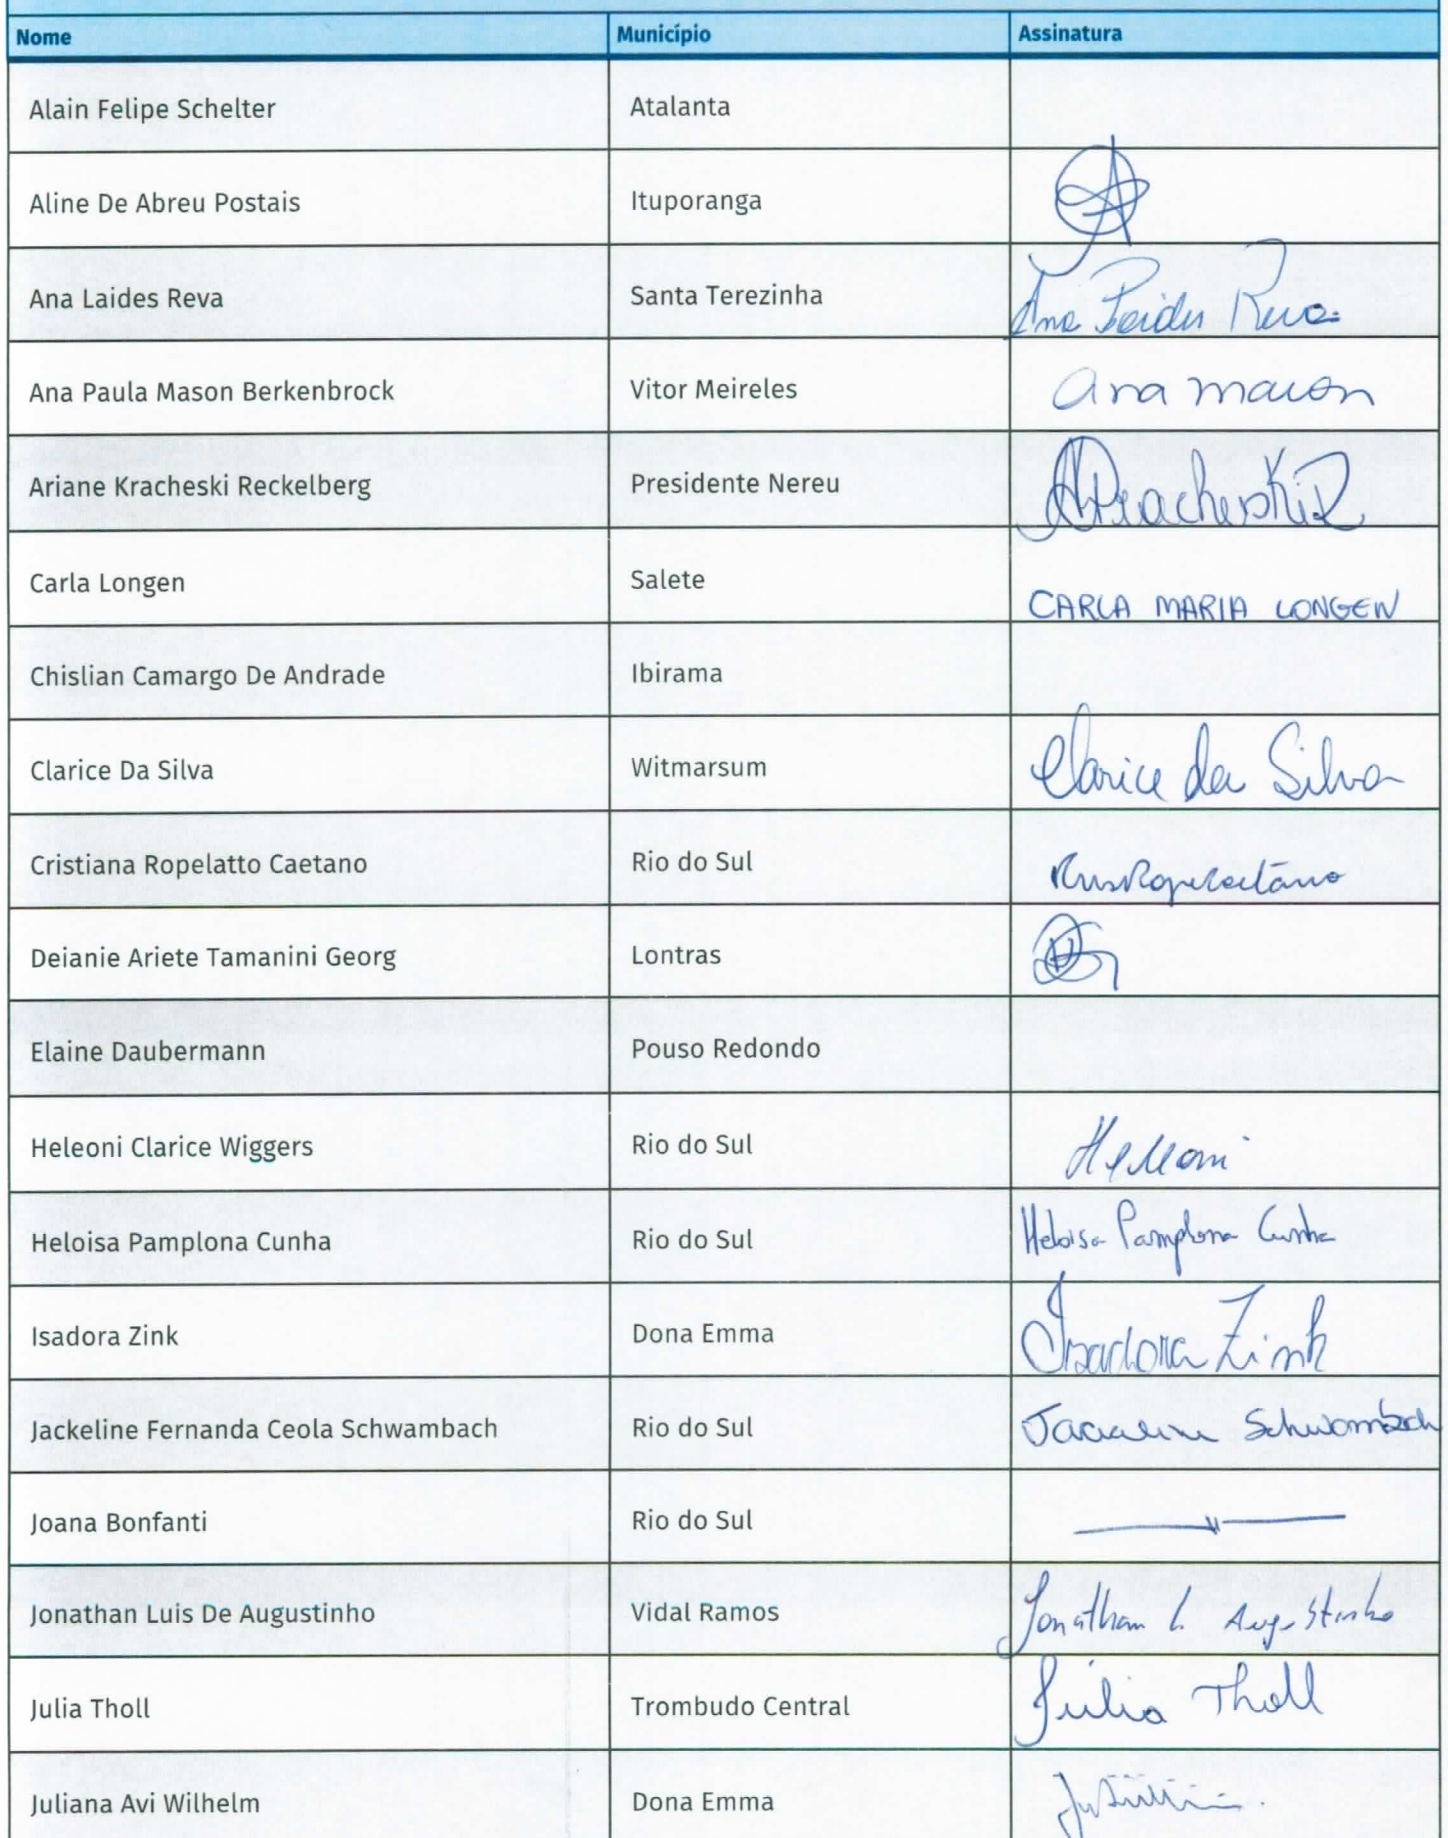 Nome Município Assinatura
Alain Felipe Schelter Atalanta
Aline De Abreu Postais Ituporanga
Ana Laides Reva Santa Terezinha Ana Laides Reva
Ana Paula Mason Berkenbrock Vitor Meireles Ana Mason
Ariane Kracheski Reckelberg Presidente Nereu AKracheskiR
Carla Longen Salete CARLA MARIA LONGEN
Chislian Camargo De Andrade Ibirama
Clarice Da Silva Witmarsum Clarice da Silva
Cristiana Ropelatto Caetano Rio do Sul
Deianie Ariete Tamanini Georg Lontras
Elaine Daubermann Pouso Redondo
Heleoni Clarice Wiggers Rio do Sul Heleoni
Heloisa Pamplona Cunha Rio do Sul Heloisa Pamplona Cunha
Isadora Zink Dona Emma Isadora Zink
Jackeline Fernanda Ceola Schwambach Rio do Sul Schwambach
Joana Bonfanti Rio do Sul
Jonathan Luis De Augustinho Vidal Ramos Jonathan L. Augustinho
Julia Tholl Trombudo Central Júlia Tholl
Juliana Avi Wilhelm Dona Emma